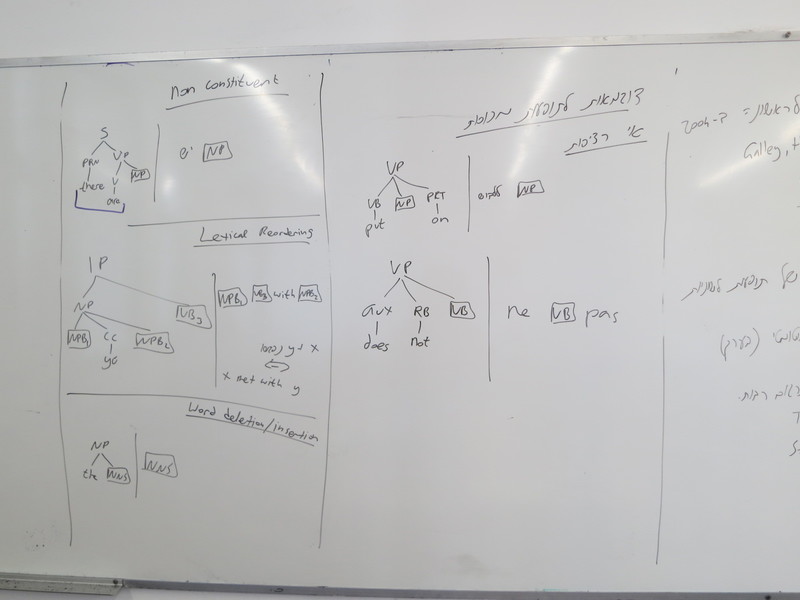 Non constituent
S
PRN VP
there V NP
are
יש NP
Lexical Reordering
IP
NP VB3
NPB1 CC NPB2
NPB1 VB3 with NPB2
x met with y
Word deletion/insertion
NP
the NNS
NNS
דוגמאות לתופעות מכוסות
אי רציפות
VP
VB NP PRT
put on
ללבוש NP
VP
aux RB VB
does not
ne VB pas
לראשון = ב-2004
Galley,
של תופעות לשוניות
(בערך)
רבות